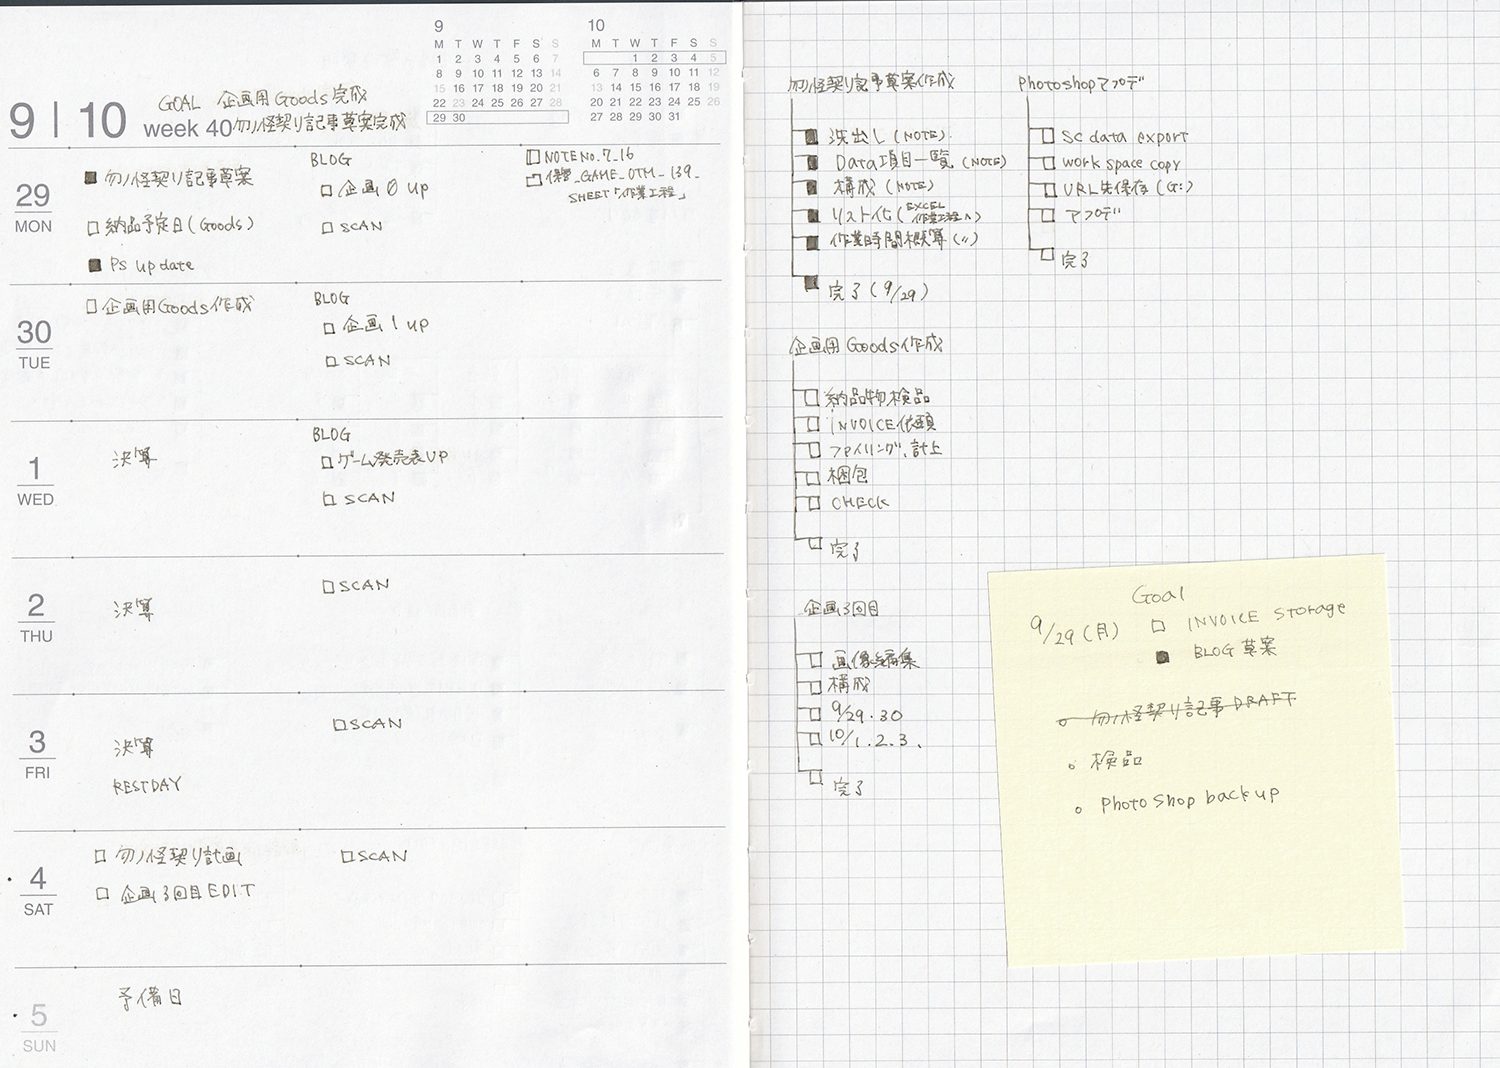 9 | 10
week 40
GOAL 企画用Goods完成
勿ノ怪契り記事草案完成
9
M T W T F S S
1 2 3 4 5 6 7
8 9 10 11 12 13 14
15 16 17 18 19 20 21
22 23 24 25 26 27 28
29 30
10
M T W T F S S
1 2 3 4 5
6 7 8 9 10 11 12
13 14 15 16 17 18 19
20 21 22 23 24 25 26
27 28 29 30 31
29
MON
■ 勿ノ怪契り記事草案
□ 納品予定日(Goods)
■ PS update
BLOG
□ 企画0 up
□ SCAN
□ NOTE No.7_16
□ _GAME_OTM_139_
SHEET「作業工程」
30
TUE
□ 企画用Goods作成
BLOG
□ 企画1 up
□ SCAN
1
WED
決算
BLOG
□ ゲーム発売表UP
□ SCAN
2
THU
決算
□ SCAN
3
FRI
決算
RESTDAY
□ SCAN
4
SAT
□ 勿ノ怪契り計画
□ 企画3回目EDIT
□ SCAN
5
SUN
予備日
勿ノ怪契り記事草案作成
■ 洗出し(NOTE).
■ Data項目一覧(NOTE)
■ 構成(NOTE)
■ リスト化(EXCEL
作業工程へ)
■ 作業時間概算(〃)
■ 完了(9/29)
Photoshopアプデ
□ SC data export
□ work space copy
□ URL先保存(G:)
□ アプデ
□ 完了
企画用Goods作成
□ 納品物検品
□ INVOICE依頼
□ ファイリング、計上
□ 梱包
□ CHECK
□ 完了
企画3回目
□ 画像編集
□ 構成
□ 9/29.30
□ 10/1.2.3.
□ 完了
Goal
9/29(月) □ INVOICE storage
■ BLOG草案
○ 勿ノ怪契り記事DRAFT
○ 検品
○ Photoshop backup